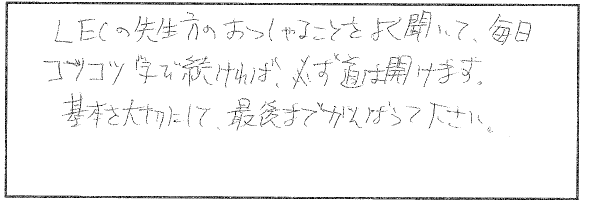 LECの先生方のおっしゃることをよく聞いて、毎日
コツコツ学び続ければ、必ず道は開けます。
基本を大切にして、最後までがんばって下さい。